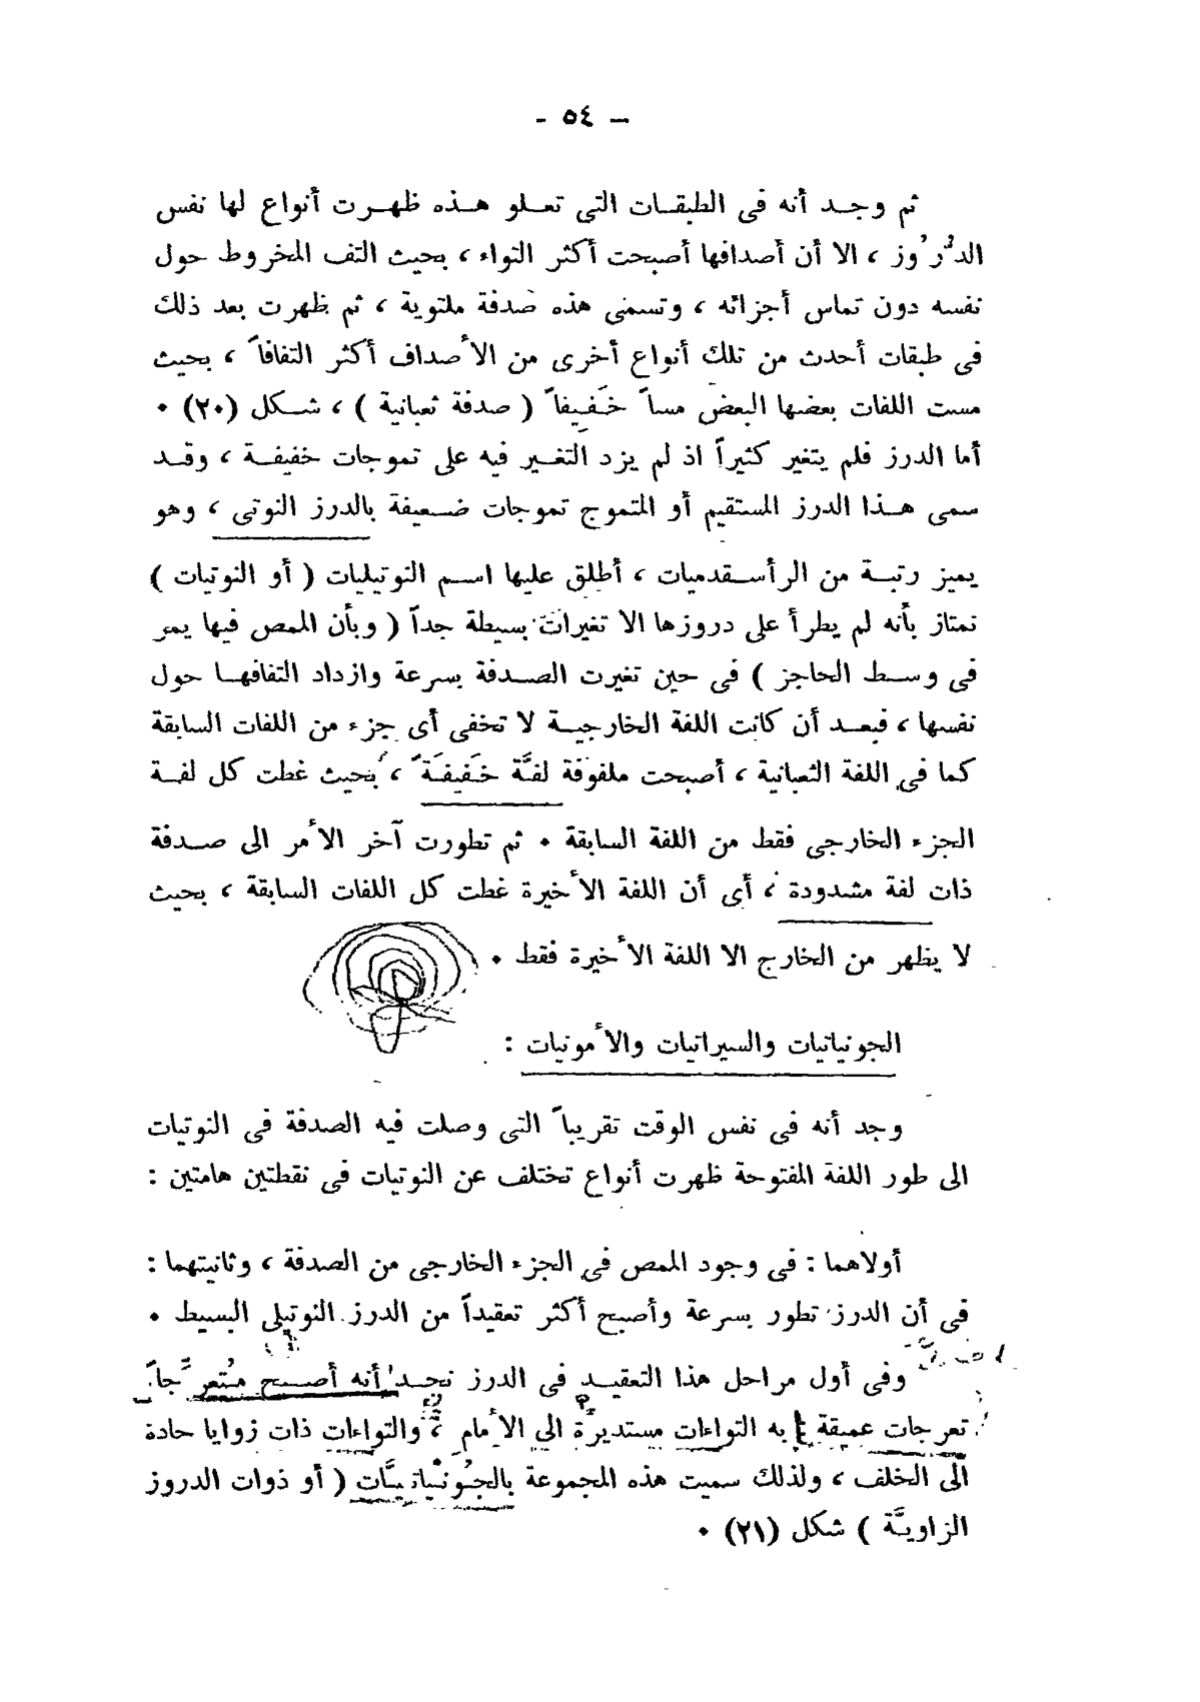 – ٥٤ -
ثم وجد أنه فى الطبقات التى تعلو هذه ظهرت أنواع لها نفس
الدُّرُوز ، الا أن أصدافها أصبحت أكثر التواء ، بحيث التف المخروط حول
نفسه دون تماس أجزائه ، وتسمى هذه صدفة ملتوية ، ثم ظهرت بعد ذلك
فى طبقات أحدث من تلك أنواع أخرى من الأصداف أكثر التفافاً ، بحيث
مست اللفات بعضها البعض مساً خَفِيفاً ( صدفة ثعبانية ) ، شكل (٢٠) •
أما الدرز فلم يتغير كثيراً اذ لم يزد التغير فيه على تموجات خفيفة ، وقد
سمى هذا الدرز المستقيم أو المتموج تموجات ضعيفة بالدرز النوتى ، وهو
يميز رتبة من الرأسقدميات ، أطلق عليها اسم النوتيليات ( أو النوتيات )
تمتاز بأنه لم يطرأ على دروزها الا تغيرات بسيطة جداً ( وبأن الممص فيها يمر
فى وسط الحاجز ) فى حين تغيرت الصدفة بسرعة وازداد التفافها حول
نفسها ، فبعد أن كانت اللفة الخارجية لا تخفى أى جزء من اللفات السابقة
كما فى اللفة الثعبانية ، أصبحت ملفوفة لفَّة خَفيفَةً ، بحيث غطت كل لفة
الجزء الخارجى فقط من اللفة السابقة • ثم تطورت آخر الأمر الى صدفة
ذات لفة مشدودة ، أى أن اللفة الأخيرة غطت كل اللفات السابقة ، بحيث
لا يظهر من الخارج الا اللفة الأخيرة فقط •
الجونياتيات والسيراتيات والأمونيات :
وجد أنه فى نفس الوقت تقريباً التى وصلت فيه الصدفة فى النوتيات
الى طور اللفة المفتوحة ظهرت أنواع تختلف عن النوتيات فى نقطتين هامتين :
أولاهما : فى وجود الممص فى الجزء الخارجى من الصدفة ، وثانيتهما :
فى أن الدرز تطور بسرعة وأصبح أكثر تعقيداً من الدرز النوتيلى البسيط •
وفى أول مراحل هذا التعقيد فى الدرز نجد أنه أصبح مُتعرِّجاً
تعرجات عميقة به التواءات مستديرة الى الأمام ، والتواءات ذات زوايا حادة
الى الخلف ، ولذلك سميت هذه المجموعة بالجُونْياتيَّات ( أو ذوات الدروز
الزاويَّة ) شكل (٢١) •